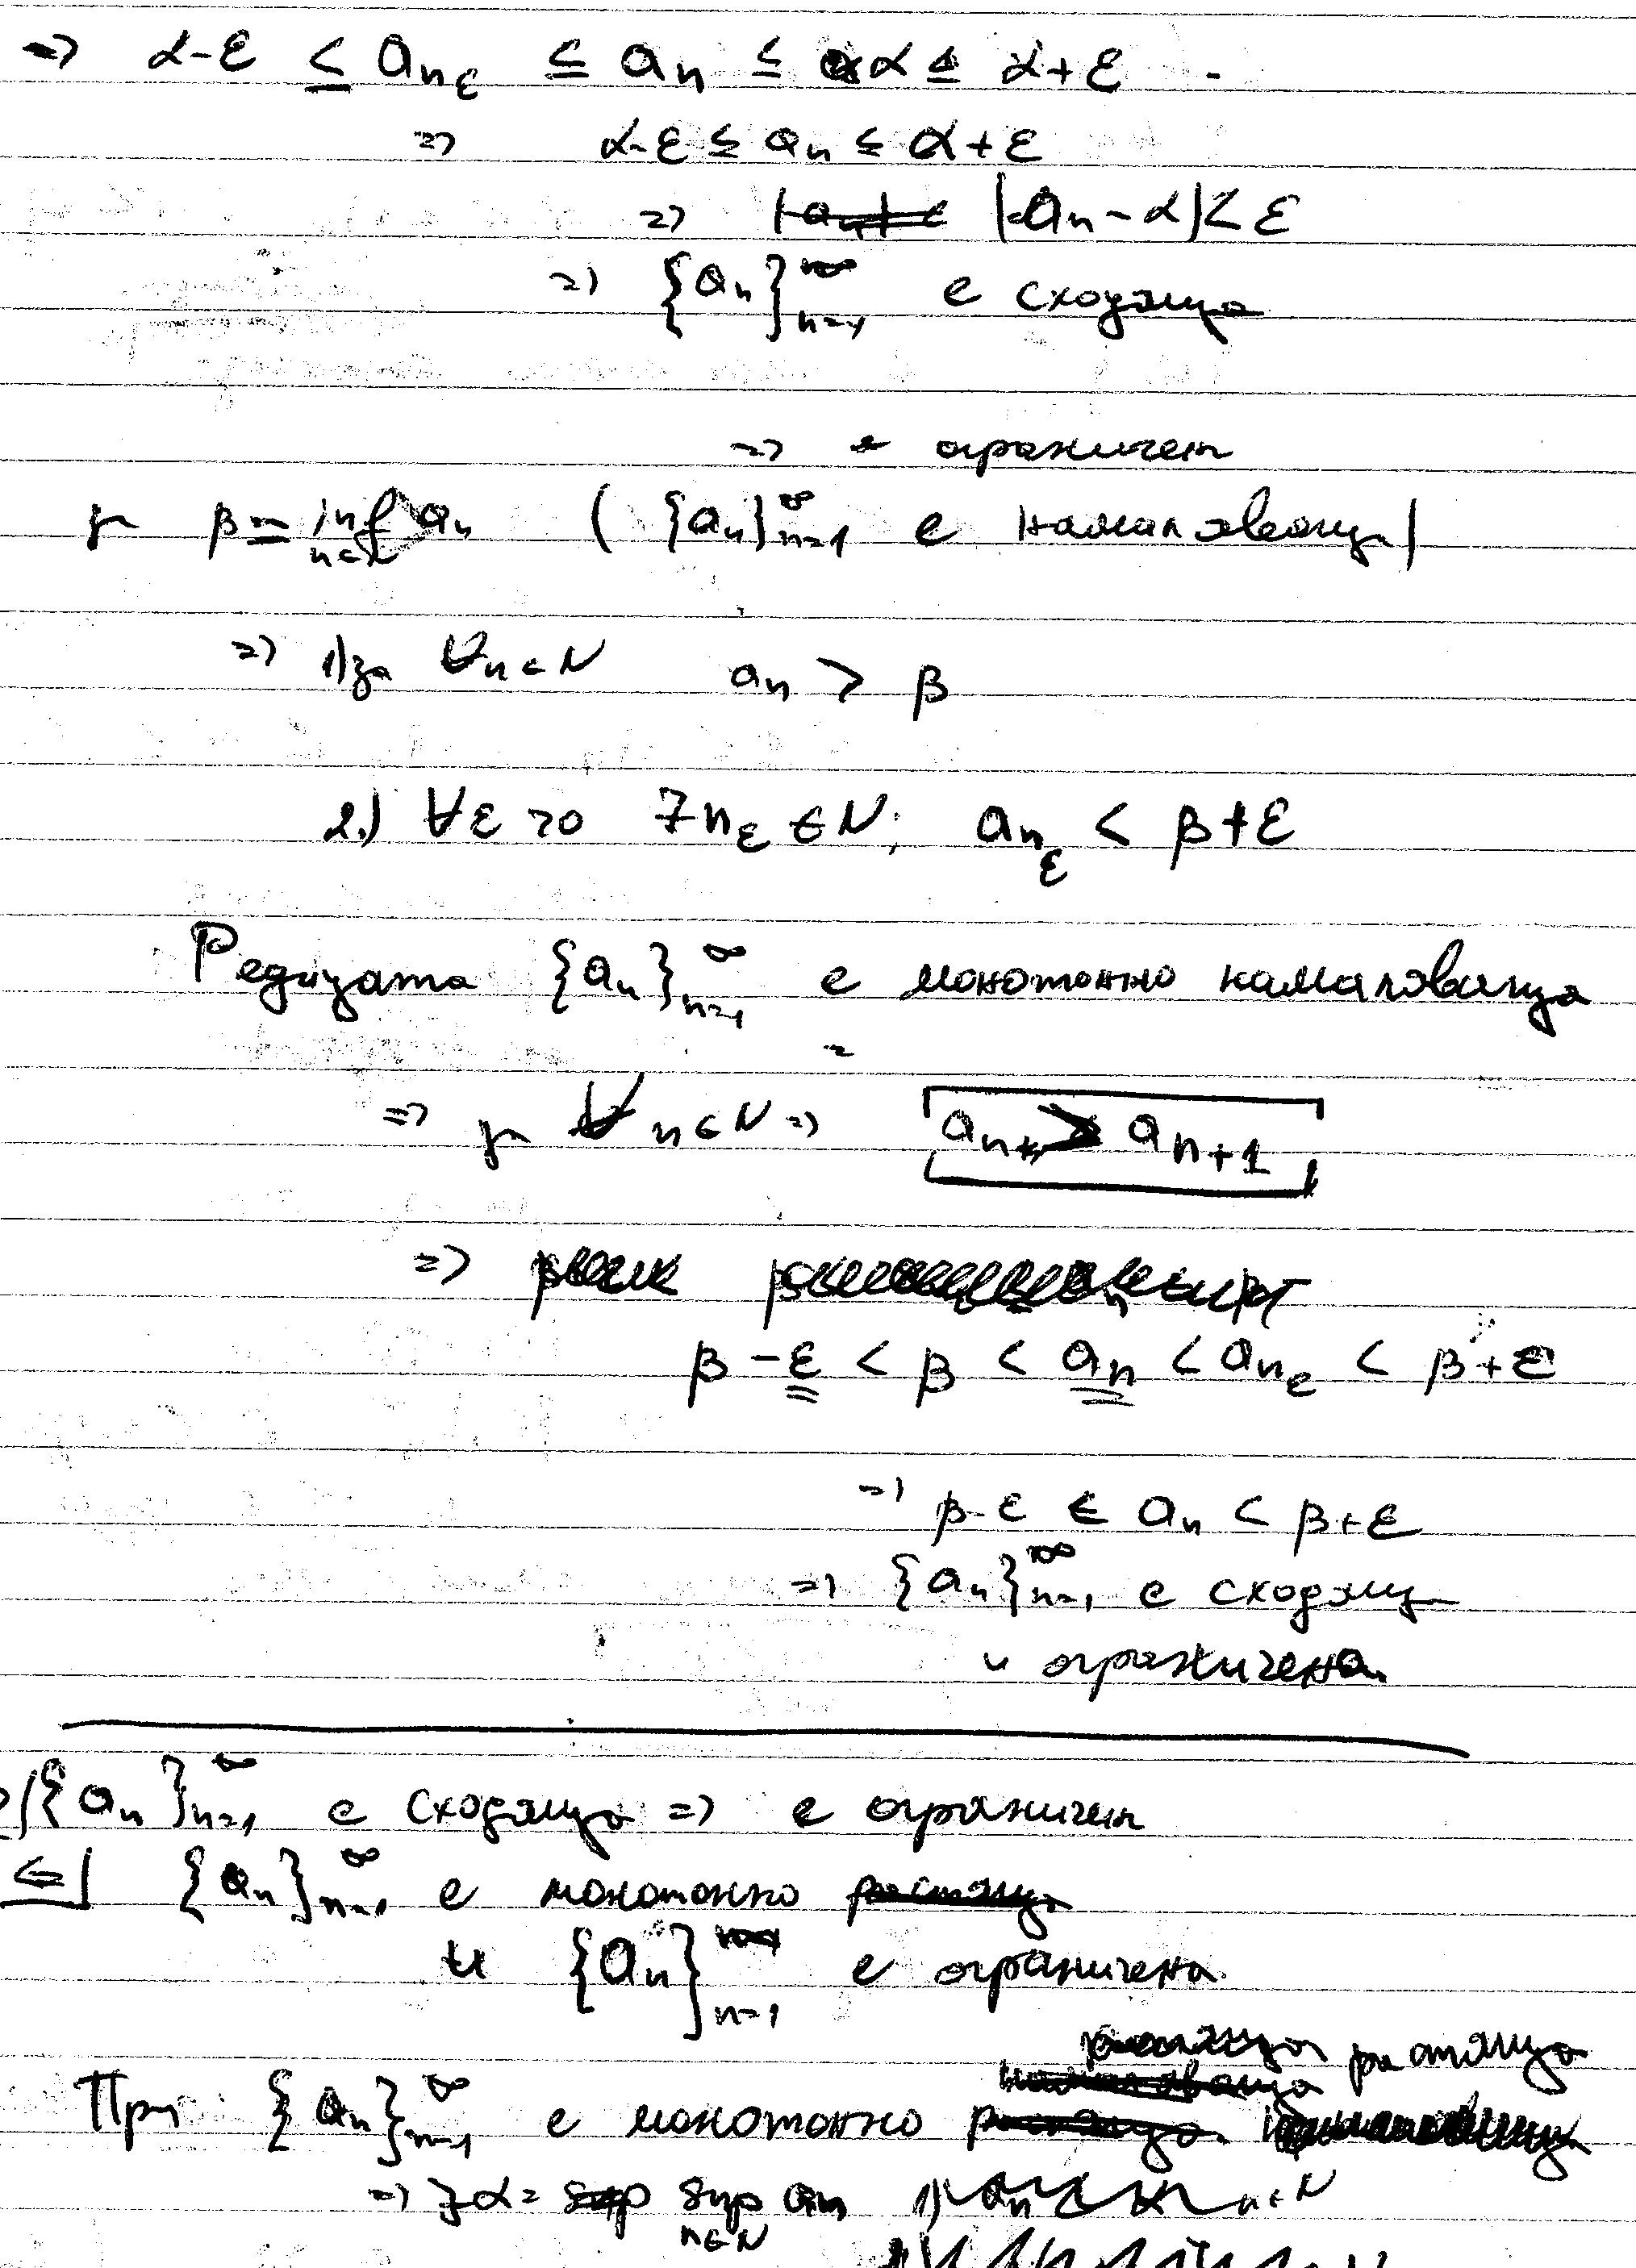 => α-ε ≤ a_{n_ε} ≤ a_n ≤ α ≤ α+ε
=> α-ε ≤ a_n ≤ α+ε
=> |a_n - α| < ε
=> {a_n}_{n=1}^∞ е сходяща
=> е ограничен
β = inf_{n∈N} a_n ( {a_n}_{n=1}^∞ е намаляваща)
=> 1) за ∀n∈N a_n > β
2.) ∀ε>0 ∃n_ε∈N; a_{n_ε} < β+ε
Редицата {a_n}_{n=1}^∞ е монотонно намаляваща
=> ∀n∈N => a_n > a_{n+1}
=>
β-ε < β < a_n < a_{n_ε} < β+ε
=> β-ε ≤ a_n < β+ε
=> {a_n}_{n=1}^∞ е сходяща
и ограничена
{a_n}_{n=1}^∞ е сходяща => е ограничен
<=| {a_n}_{n=1}^∞ е монотонно
и {a_n}_{n=1}^∞ е ограничена
растяща
При {a_n}_{n=1}^∞ е монотонно
=> ∃α = sup_{n∈N} a_n 1)